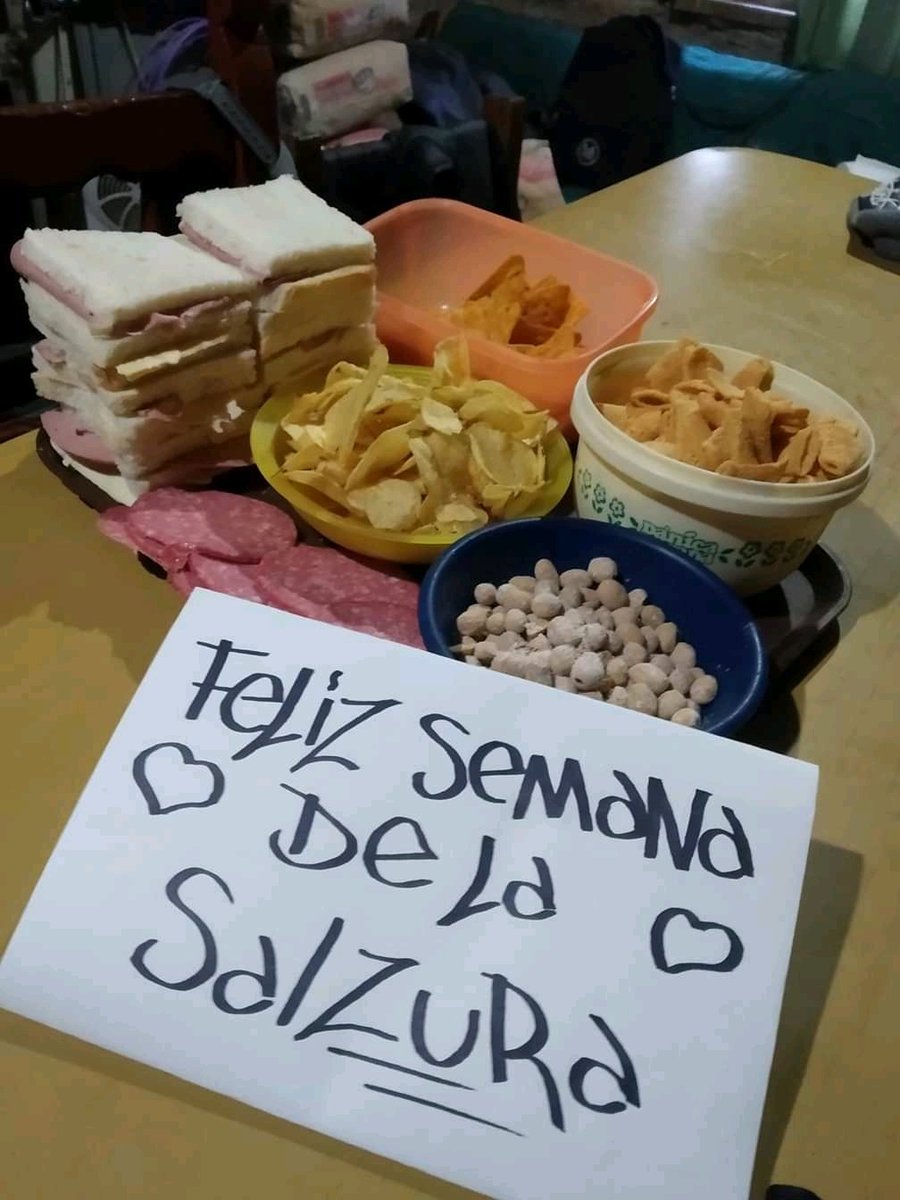 FeLiZ SeMaNa
De La
SalZURa